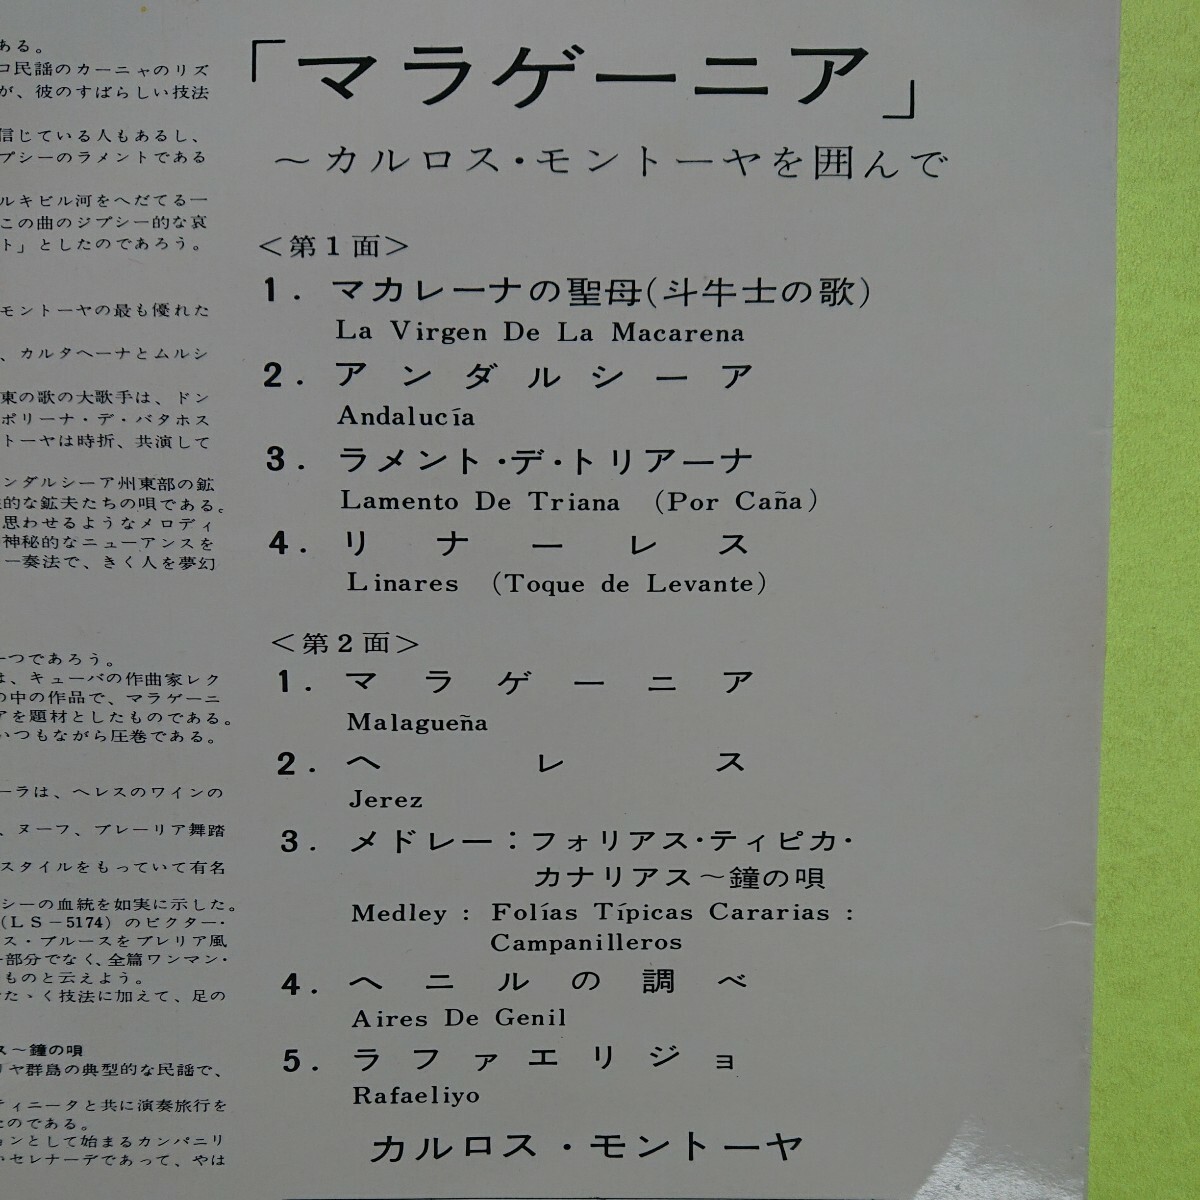 ある。
コ民謡のカーニャのリズ
が、彼のすばらしい技法
信じている人もあるし、
プシーのラメントである
ルキビル河をへだてる一
この曲のジプシー的な哀
ト」としたのであろう。
モントーヤの最も優れた
、カルタヘーナとムルシ
東の歌の大歌手は、ドン
ポリーナ・デ・バタホス
トーヤは時折、共演して
ンダルシーア州東部の鉱
的な鉱夫たちの唄である。
思わせるようなメロディ
神秘的なニューアンスを
ー奏法で、きく人を夢幻
一つであろう。
は、キューバの作曲家レク
の中の作品で、マラゲーニ
アを題材としたものである。
いつもながら圧巻である。
ーラは、ヘレスのワインの
、ヌーフ、ブレーリア舞踏
スタイルをもっていて有名
シーの血統を如実に示した。
(LS−5174)のビクター・
ス・ブルースをブレリア風
一部分でなく、全篇ワンマン・
ものと云えよう。
たゝく技法に加えて、足の
ス～鐘の唄
リヤ群島の典型的な民謡で、
ティニータと共に演奏旅行を
たのである。
ョンとして始まるカンパニリ
いセレナーデであって、やは
「マラゲーニア」
～カルロス・モントーヤを囲んで
＜第1面＞
1. マカレーナの聖母(斗牛士の歌)
La Virgen De La Macarena
2. アンダルシーア
Andalucía
3. ラメント・デ・トリアーナ
Lamento De Triana (Por Caña)
4. リナーレス
Linares (Toque de Levante)
＜第2面＞
1. マラゲーニア
Malagueña
2. ヘレス
Jerez
3. メドレー：フォリアス・ティピカ・
カナリアス～鐘の唄
Medley : Folías Típicas Cararias :
Campanilleros
4. ヘニルの調べ
Aires De Genil
5. ラファエリジョ
Rafaeliyo
カルロス・モントーヤ